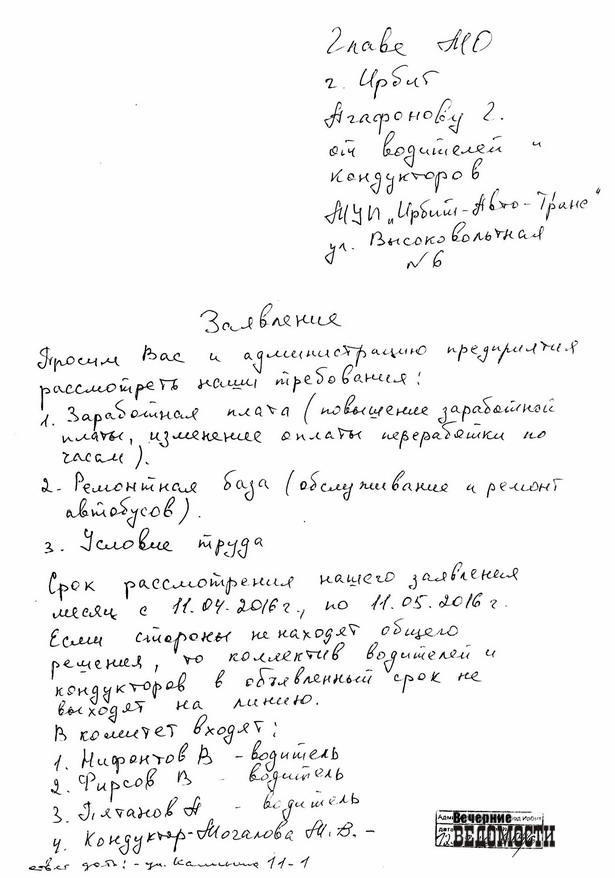 Главе МО
г. Ирбит
Агафонову Г.
от водителей и
кондукторов
МУП „Ирбит-Авто-Транс"
ул. Высоковольтная
№6
Заявление
Просим Вас и администрацию предприятия
рассмотреть наши требования:
1. Заработная плата (повышение заработной
платы, изменение оплаты переработки по
часам).
2. Ремонтная база (обслуживание и ремонт
автобусов).
3. Условие труда
Срок рассмотрения нашего заявления
месяц с 11.04.2016 г., по 11.05.2016 г.
Если стороны не находят общего
решения, то коллектив водителей и
кондукторов в объявленный срок не
выходят на линию.
В комитет входят:
1. Нифонтов В - водитель
2. Фирсов В - водитель
3. Пятанов А - водитель
4. Кондуктор-Могалова М.В. -
ответ дать: - ул. Калинина 11-1
Вечерние
ВЕДОМОСТИ